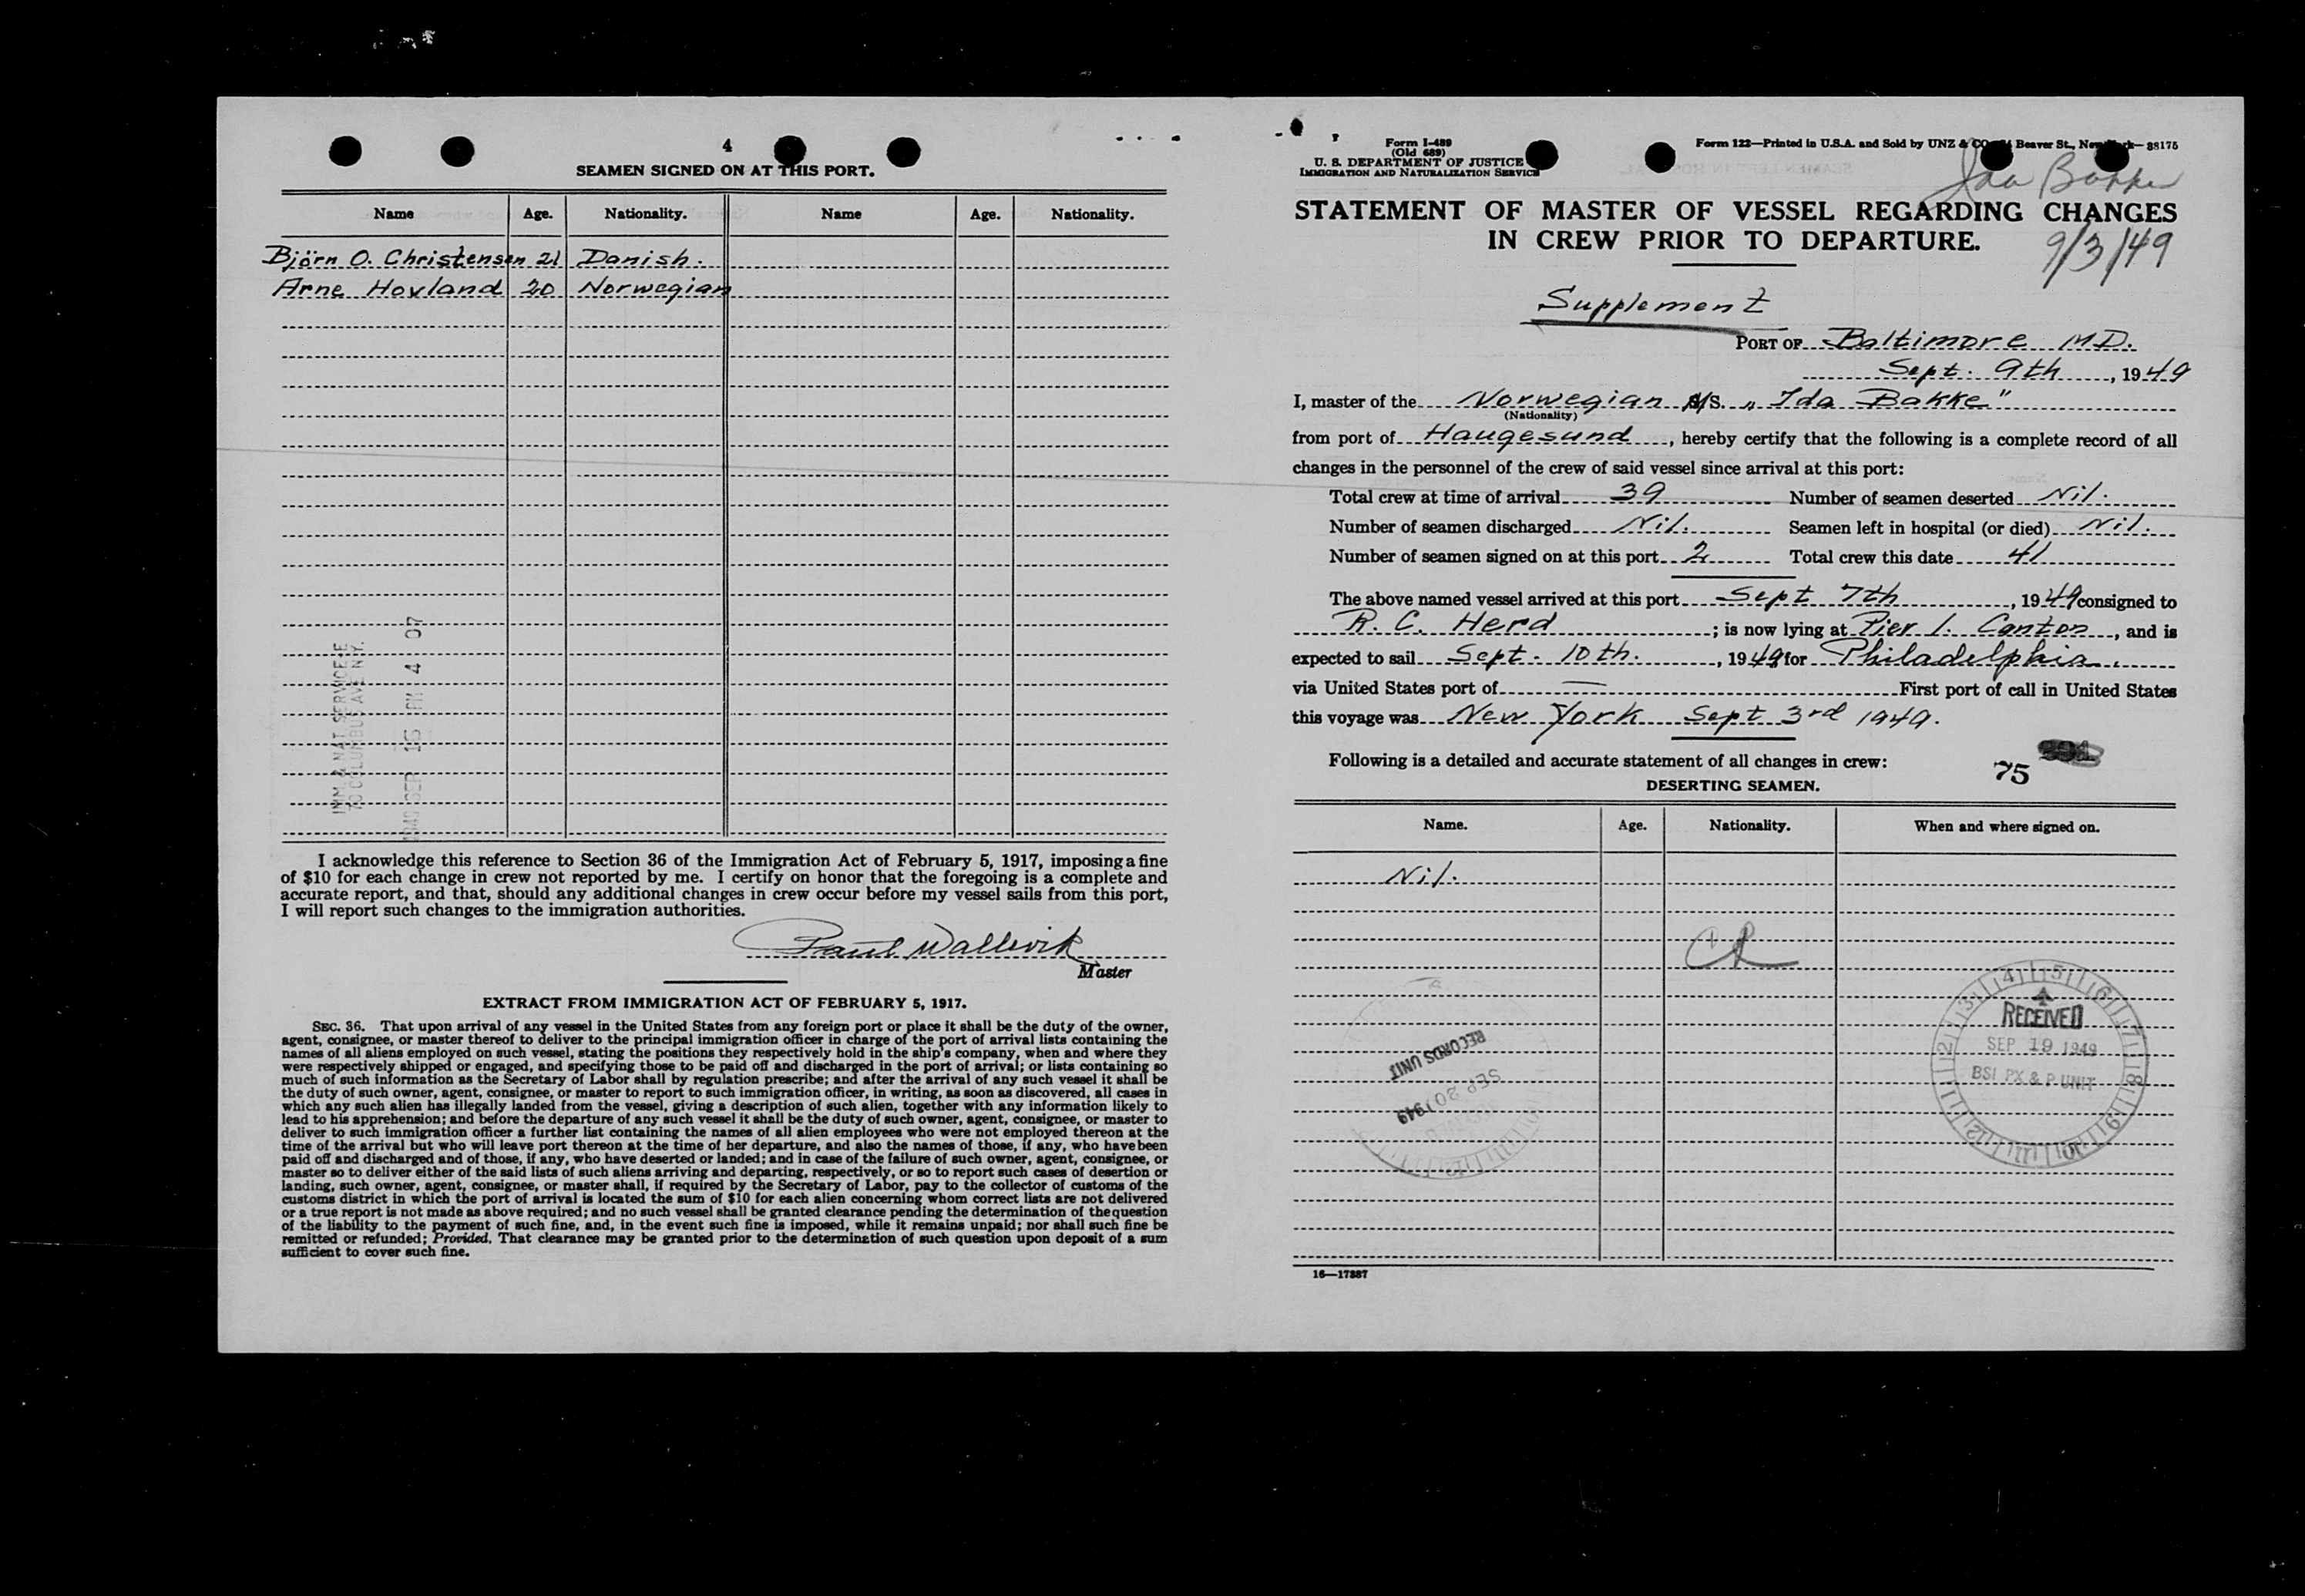 4
SEAMEN SIGNED ON AT THIS PORT.
Name Age. Nationality. Name Age. Nationality.
Björn O. Christensen 21 Danish.
Arne Hovland 20 Norwegian
IMM. & NAT. SERVICE
70 COLUMBUS AVE. N.Y.
1949 SEP 16 PM 4 07
I acknowledge this reference to Section 36 of the Immigration Act of February 5, 1917, imposing a fine
of $10 for each change in crew not reported by me. I certify on honor that the foregoing is a complete and
accurate report, and that, should any additional changes in crew occur before my vessel sails from this port,
I will report such changes to the immigration authorities.
Paul Wallevik
Master
EXTRACT FROM IMMIGRATION ACT OF FEBRUARY 5, 1917.
SEC. 36. That upon arrival of any vessel in the United States from any foreign port or place it shall be the duty of the owner,
agent, consignee, or master thereof to deliver to the principal immigration officer in charge of the port of arrival lists containing the
names of all aliens employed on such vessel, stating the positions they respectively hold in the ship's company, when and where they
were respectively shipped or engaged, and specifying those to be paid off and discharged in the port of arrival; or lists containing so
much of such information as the Secretary of Labor shall by regulation prescribe; and after the arrival of any such vessel it shall be
the duty of such owner, agent, consignee, or master to report to such immigration officer, in writing, as soon as discovered, all cases in
which any such alien has illegally landed from the vessel, giving a description of such alien, together with any information likely to
lead to his apprehension; and before the departure of any such vessel it shall be the duty of such owner, agent, consignee, or master to
deliver to such immigration officer a further list containing the names of all alien employees who were not employed thereon at the
time of the arrival but who will leave port thereon at the time of her departure, and also the names of those, if any, who have been
paid off and discharged and of those, if any, who have deserted or landed; and in case of the failure of such owner, agent, consignee, or
master so to deliver either of the said lists of such aliens arriving and departing, respectively, or so to report such cases of desertion or
landing, such owner, agent, consignee, or master shall, if required by the Secretary of Labor, pay to the collector of customs of the
customs district in which the port of arrival is located the sum of $10 for each alien concerning whom correct lists are not delivered
or a true report is not made as above required; and no such vessel shall be granted clearance pending the determination of the question
of the liability to the payment of such fine, and, in the event such fine is imposed, while it remains unpaid; nor shall such fine be
remitted or refunded; Provided, That clearance may be granted prior to the determination of such question upon deposit of a sum
sufficient to cover such fine.
Form I-489
(Old 689)
U. S. DEPARTMENT OF JUSTICE
IMMIGRATION AND NATURALIZATION SERVICE
Form 122—Printed in U.S.A. and Sold by UNZ & CO Beaver St., New York—38175
Ida Bakke
STATEMENT OF MASTER OF VESSEL REGARDING CHANGES
IN CREW PRIOR TO DEPARTURE.
9/3/49
Supplement
PORT OF Baltimore MD.
Sept. 9th, 1949
I, master of the Norwegian M/S. „Ida Bakke"
(Nationality)
from port of Haugesund, hereby certify that the following is a complete record of all
changes in the personnel of the crew of said vessel since arrival at this port:
Total crew at time of arrival 39 Number of seamen deserted Nil.
Number of seamen discharged Nil. Seamen left in hospital (or died) Nil.
Number of seamen signed on at this port 2 Total crew this date 41
The above named vessel arrived at this port Sept 7th, 1949 consigned to
R. C. Herd; is now lying at Pier 1. Canton, and is
expected to sail Sept. 10th., 1949 for Philadelphia.
via United States port of — First port of call in United States
this voyage was New York Sept 3rd 1949.
Following is a detailed and accurate statement of all changes in crew:
75
DESERTING SEAMEN.
Name. Age. Nationality. When and where signed on.
Nil.
RECORDS UNIT
SEP 20 1949
RECEIVED
SEP 19 1949
BSI PX & P UNIT
16—17887